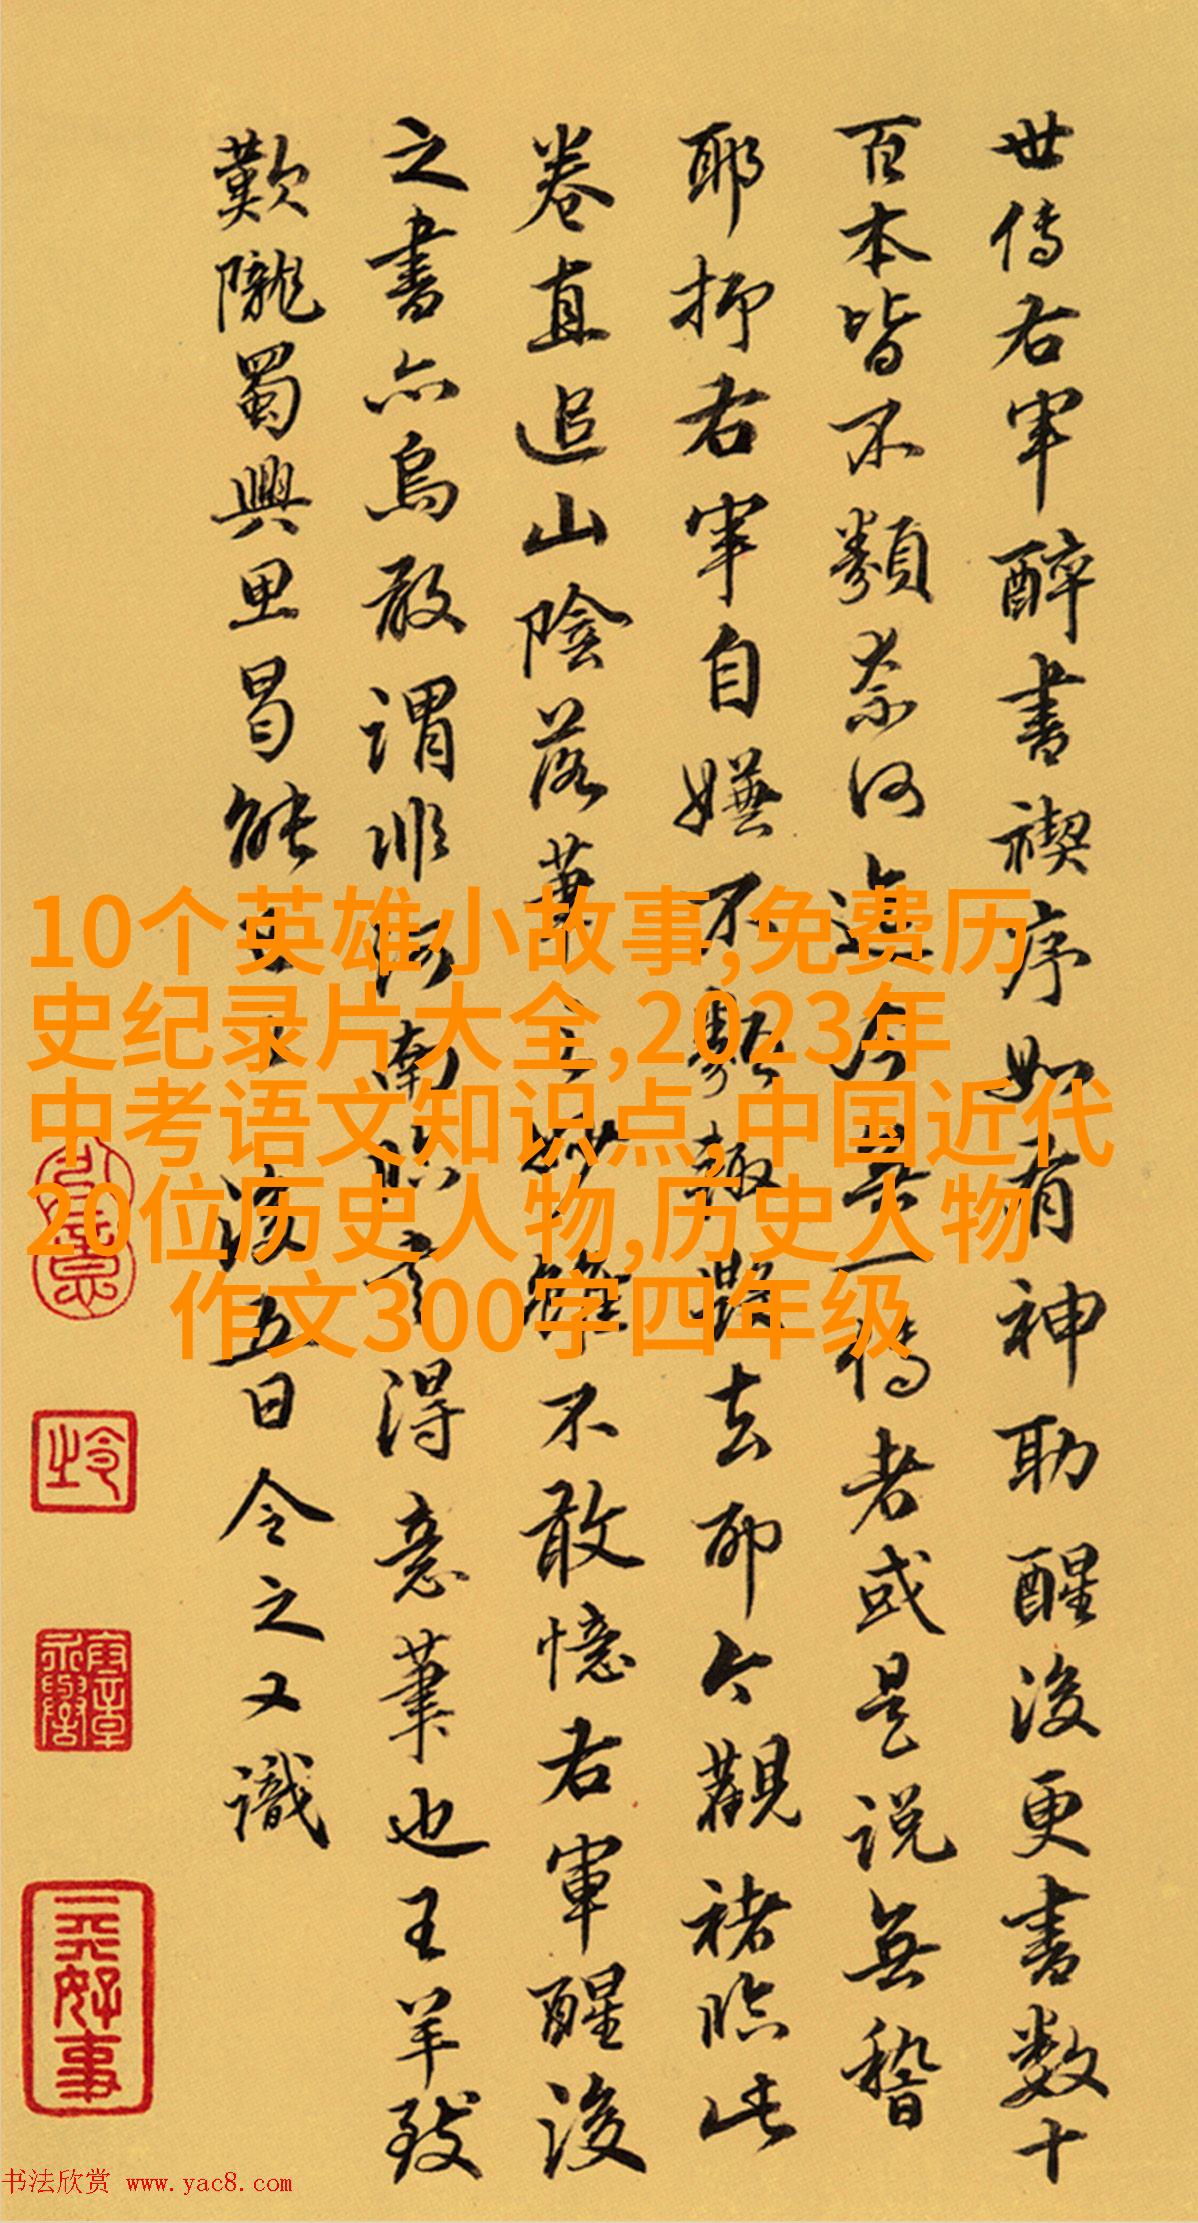 世傳右軍醉書禊序如有神助醒後更書數十
百本皆不類奈何迄今無一傳者或是說無稽
耶抑右軍自嫌不類輙去耶今觀褚臨此
卷直追山陰落筆之妙雖不敢憶右軍醒後
之書亦烏敢謂非河南臨得意筆也王羊致
歎隴蜀興思曷能已後五日令之又識
10个英雄小故事,免费历
史纪录片大全,2023年
中考语文知识点,中国近代
20位历史人物,历史人物
作文300字四年级
好事
书法欣赏 www.yac8.com